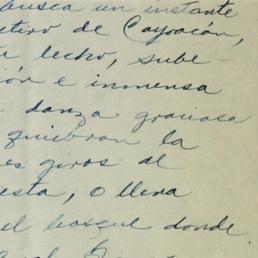 busca un instante
retiro de Coyoacán,
tu lecho, sube-
ión e inmensa
danza graciosa
quiebran la
es giros al
esta, o llena
el bosque donde